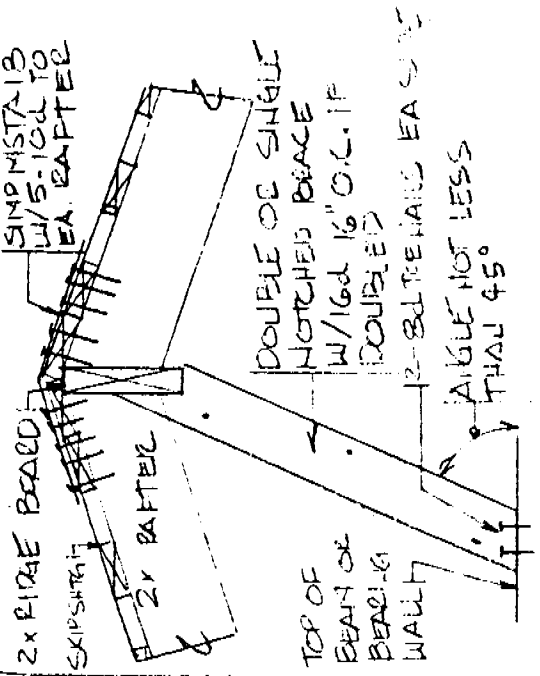 SIMP MSTA 18
W/5-10d TO
EA. RAFTER
2x RIDGE BOARD
SKIPSHTG
2x RAFTER
DOUBLE OR SINGLE
NOTCHED BRACE
W/16d 16" O.C. IF
DOUBLED
2-8d TOENAILS EA SIDE
ANGLE NOT LESS
THAN 45°
TOP OF
BEAM OR
BEARING
WALL